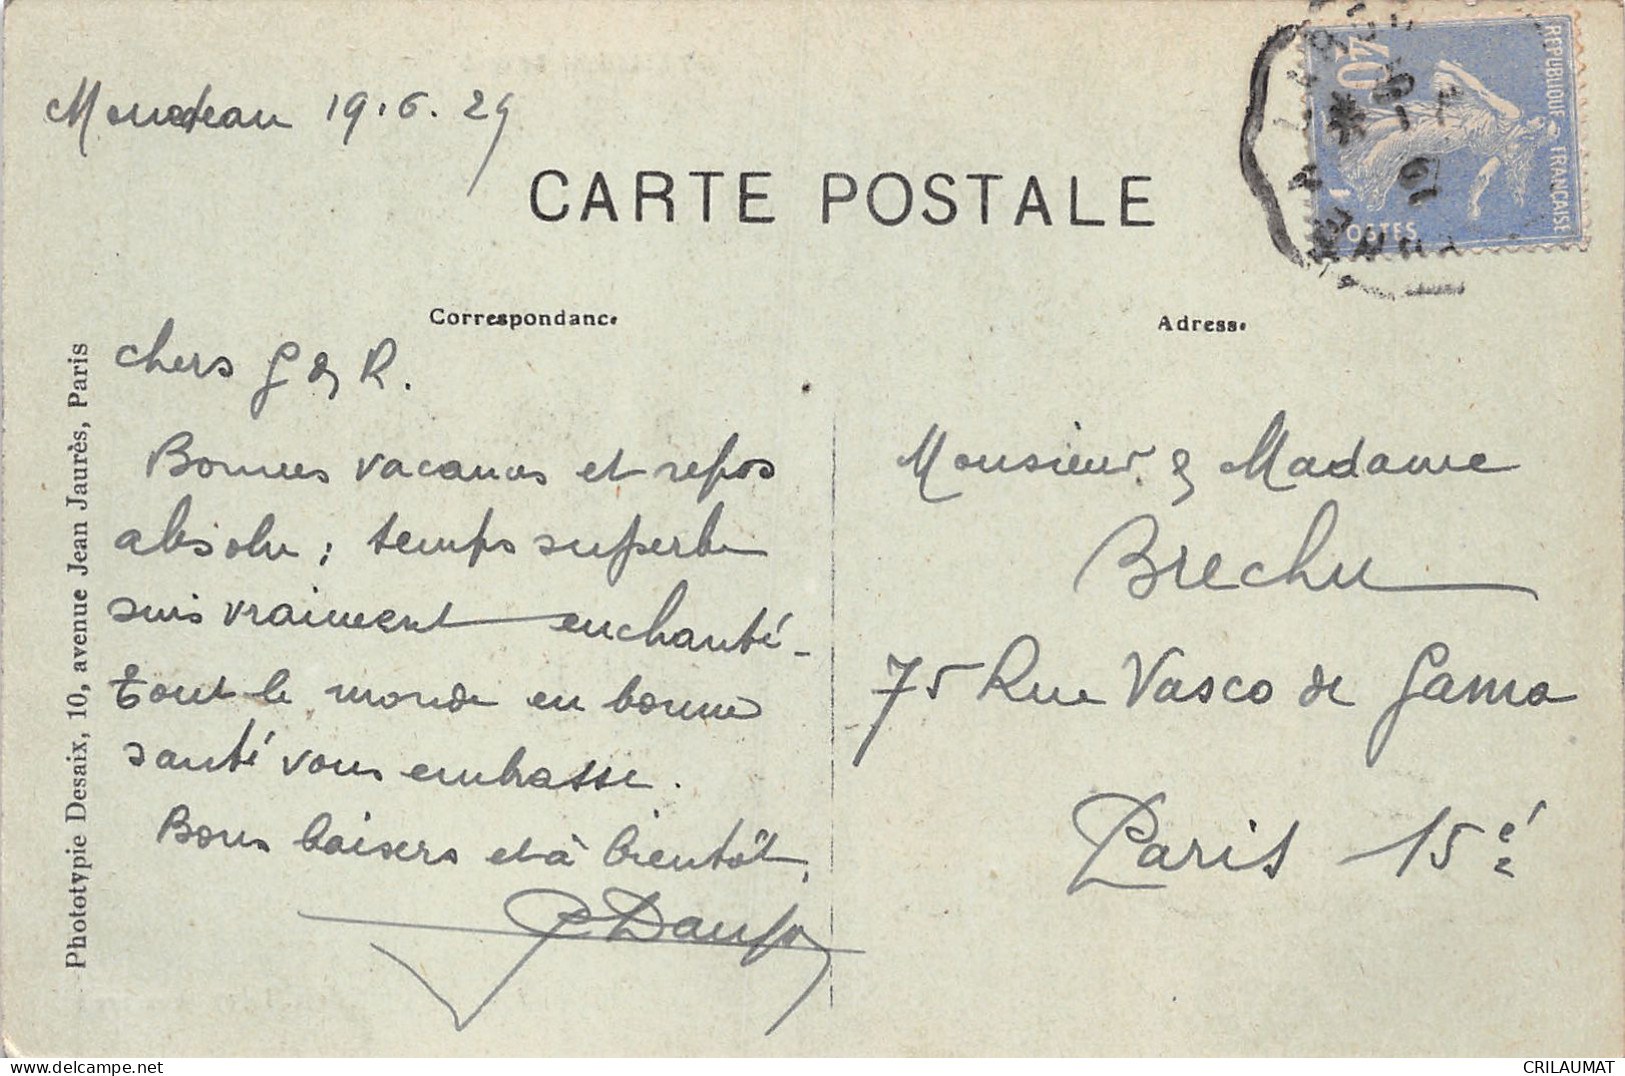 19.6.29
CARTE POSTALE
Correspondance
Adresse
REPUBLIQUE FRANÇAISE
40
POSTES
Phototypie Desaix, 10, avenue Jean Jaurès, Paris
chers G & R.
Bonnes vacances et repos
absolu ; temps superbe
suis vraiment enchanté -
tout le monde en bonne
santé vous embrasse.
Bons baisers et à bientôt,
Monsieur & Madame
Brechu
75 Rue Vasco de Gama
Paris 15e
CRILAUMAT